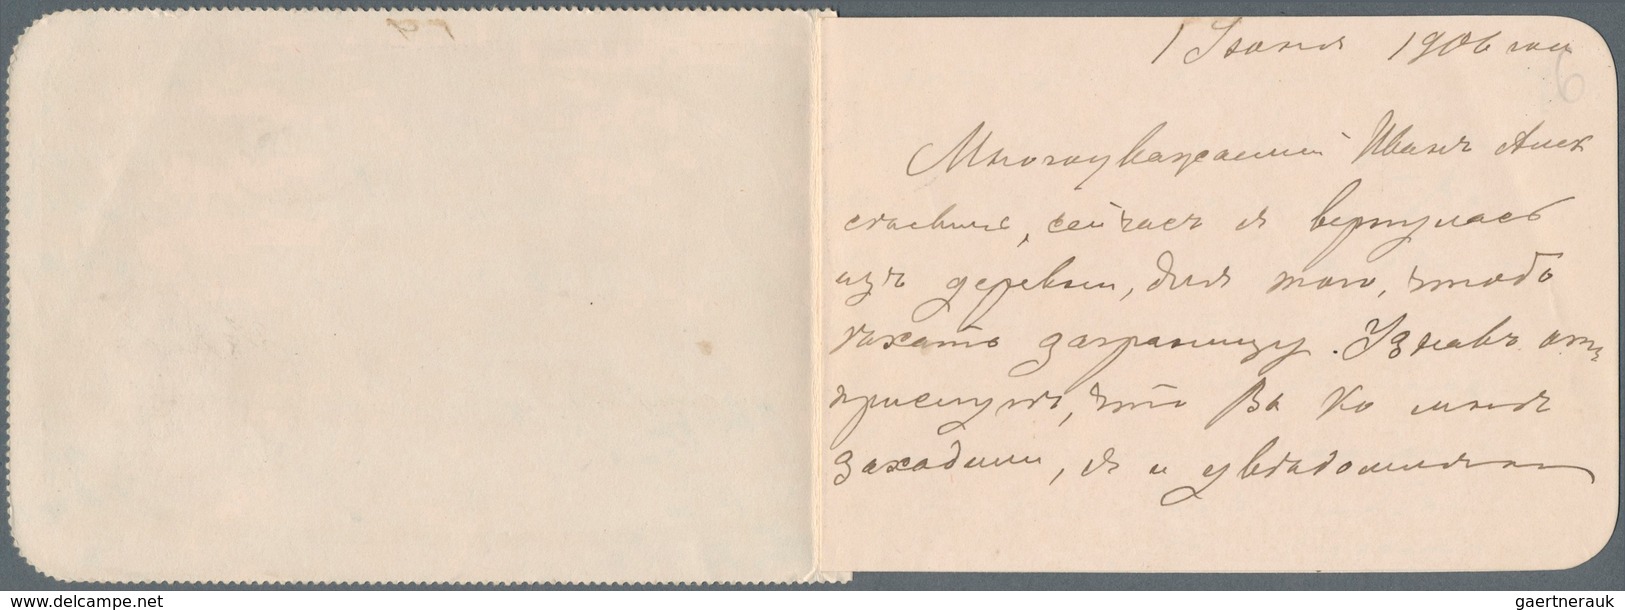 1 Іюня 1906 года
Многоуважаемый Иванъ Алек
сѣевичъ, сейчасъ я вернулась
изъ деревни, для того, чтобъ
ѣхать заграницу. Узнавъ отъ
прислуги, что Вы ко мнѣ
заходили, я и увѣдомляю
www.delcampe.net
gaertnerauk